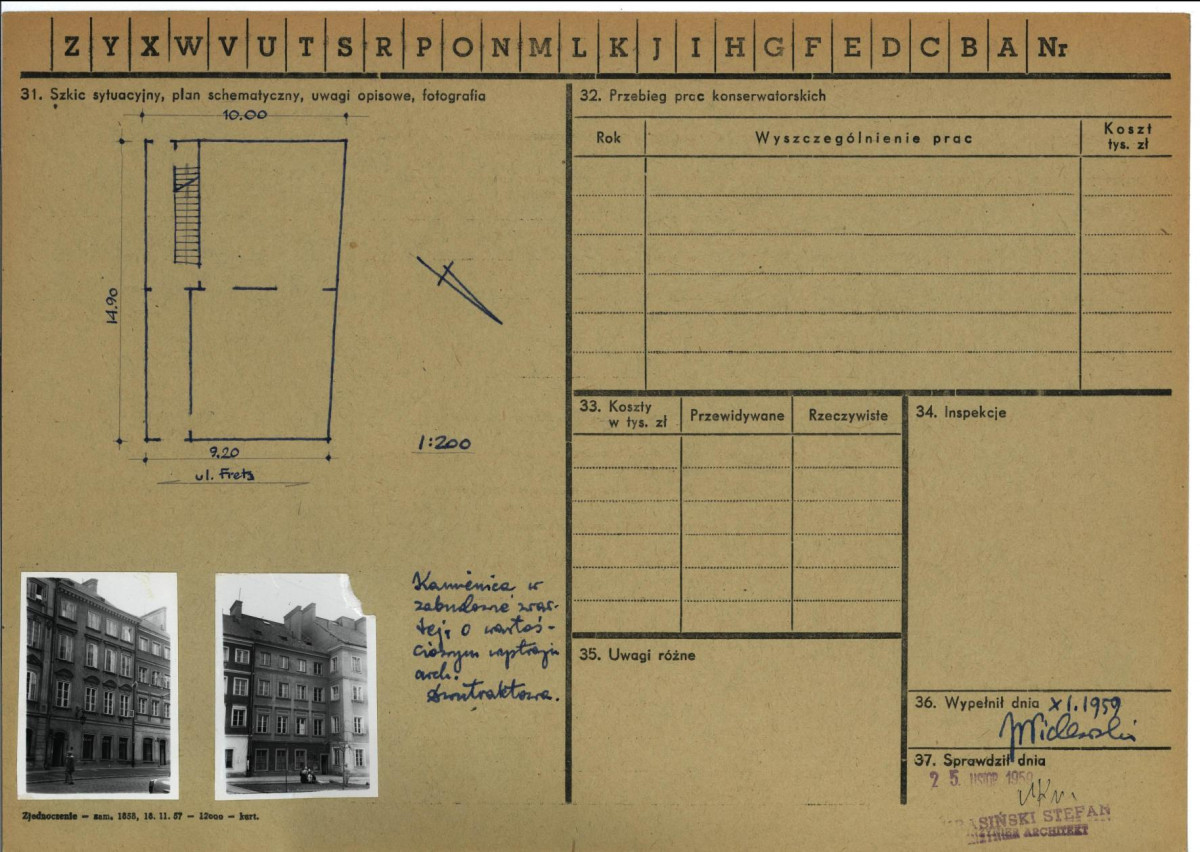 Z Y X W V U T S R P O N M L K J I H G F E D C B A Nr
31. Szkic sytuacyjny, plan schematyczny, uwagi opisowe, fotografia
10.00
14.90
9.20
ul. Freta
1:200
Kamienica w
zabudowie zwar-
tej, o wartoś-
ciowym wystroju
arch.
Dwutraktowa.
Zjednoczenie — zam. 1858, 18. 11. 57 — 12000 — kart.
32. Przebieg prac konserwatorskich
Rok
Wyszczególnienie prac
Koszt
tys. zł
33. Koszty
w tys. zł
Przewidywane
Rzeczywiste
34. Inspekcje
35. Uwagi różne
36. Wypełnił dnia XI.1959
37. Sprawdził dnia
25.
KRASIŃSKI STEFAN
ARCHITEKT